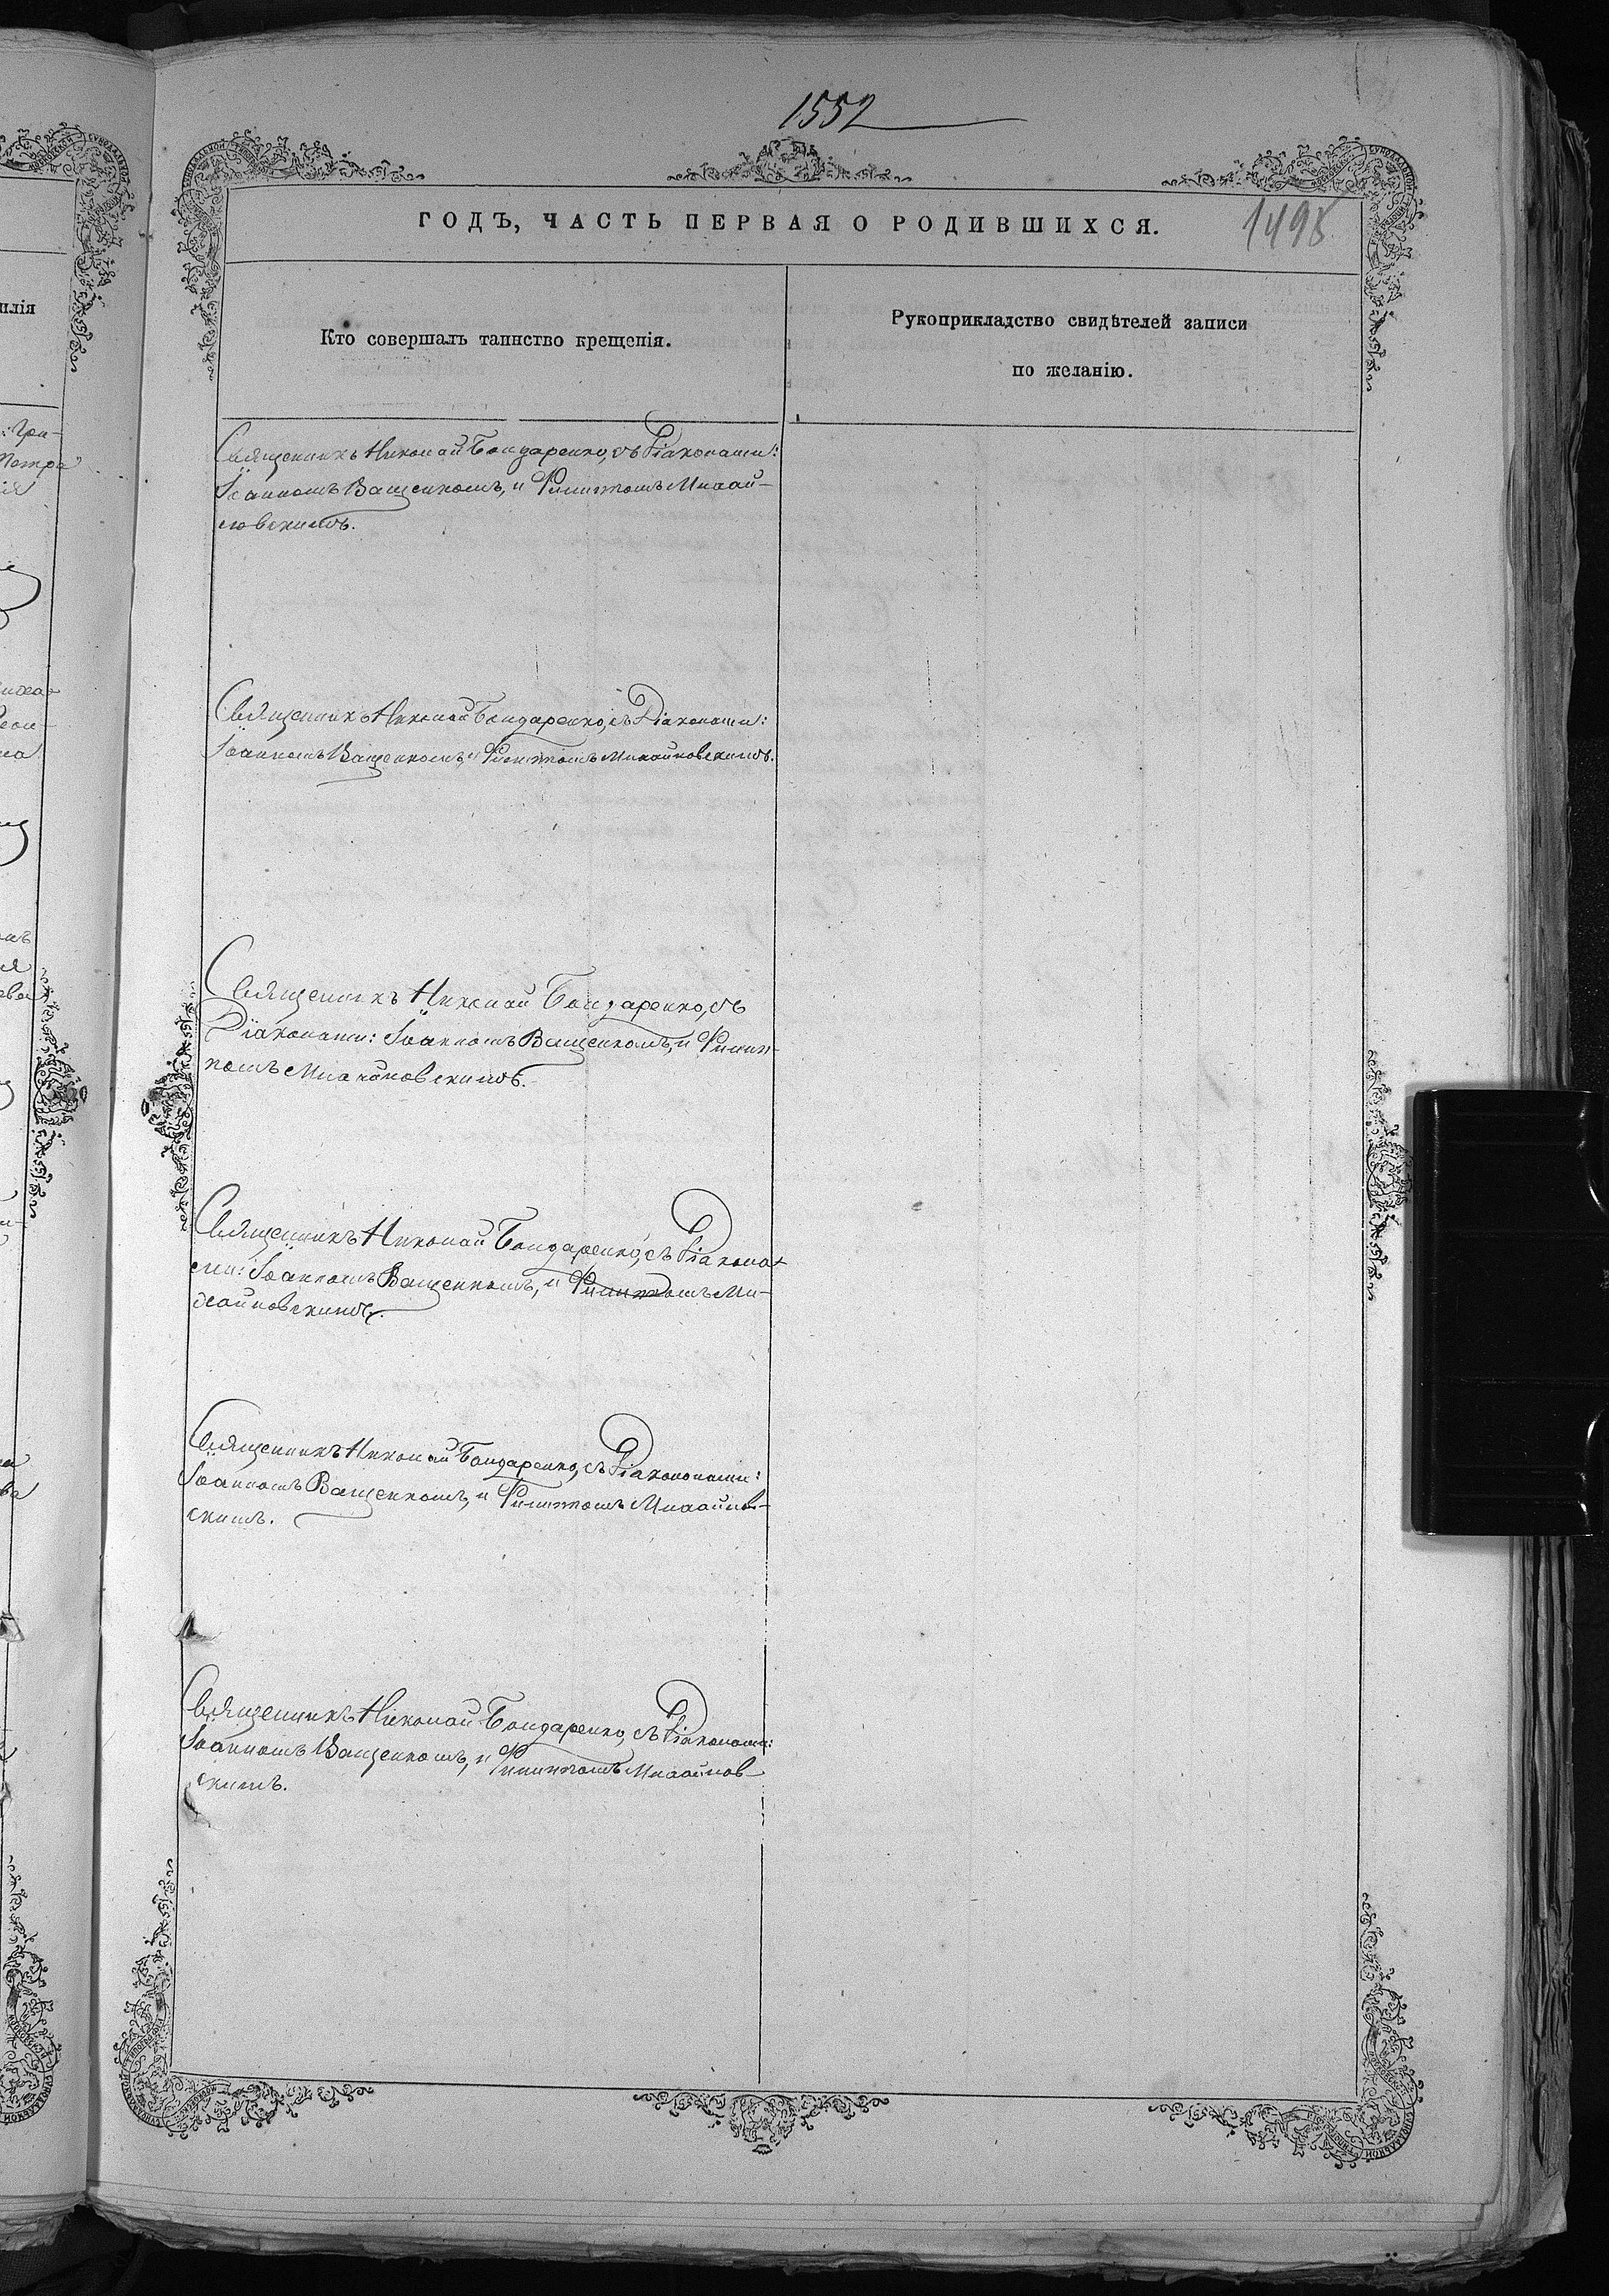 1552
ГОДЪ, ЧАСТЬ ПЕРВАЯ О РОДИВШИХСЯ.
1498
Кто совершалъ таинство крещенія.
Рукоприкладство свидѣтелей записи
по желанію.
Священникъ Николай Бондаренко, съ Діаконами:
Іоанномъ Ващенкомъ, и Филиппомъ Михай-
ловскимъ.
Священникъ Николай Бондаренко, съ Діаконами:
Іоанномъ Ващенкомъ, и Филиппомъ Михайловскимъ.
Священникъ Николай Бондаренко, съ
Діаконами: Іоанномъ Ващенкомъ, и Филип-
помъ Михайловскимъ.
Священникъ Николай Бондаренко, съ Діакона-
ми: Іоанномъ Ващенкомъ, и Филиппомъ Ми-
хайловскимъ.
Священникъ Николай Бондаренко, съ Діакономи:
Іоанномъ Ващенкомъ, и Филиппомъ Михайлов-
скимъ.
Священникъ Николай Бондаренко, съ Діаконами:
Іоанномъ Ващенкомъ, и Филиппомъ Михайлов-
скимъ.